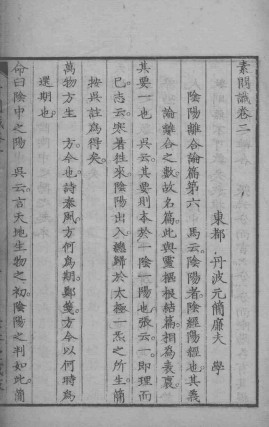 素問識卷二
東都 丹波元簡廉夫 學
陰陽離合論篇第六 馬云陰陽者陰經陽經也其義
論離合之數故名篇此與靈樞根結篇相爲表裏
其要一也 吳云其要則本於一陰一陽也張云一即理而
已志云寒暑往來陰陽出入總歸於太極一炁之所生簡
按吳註爲得矣
萬物方生 方今也詩秦風方何爲期鄭箋方今以何時爲
還期也
命曰陰中之陽 吳云言天地生物之初陰陽之判如此簡